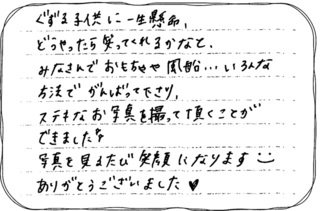 ぐずる子供に一生懸命、
どうやったら笑ってくれるかなと、
みなさんでおもちゃや風船…いろんな
方法でがんばって下さり、
ステキなお写真を撮って頂くことが
できました
写真を見るたび笑顔になります
ありがとうございました♥